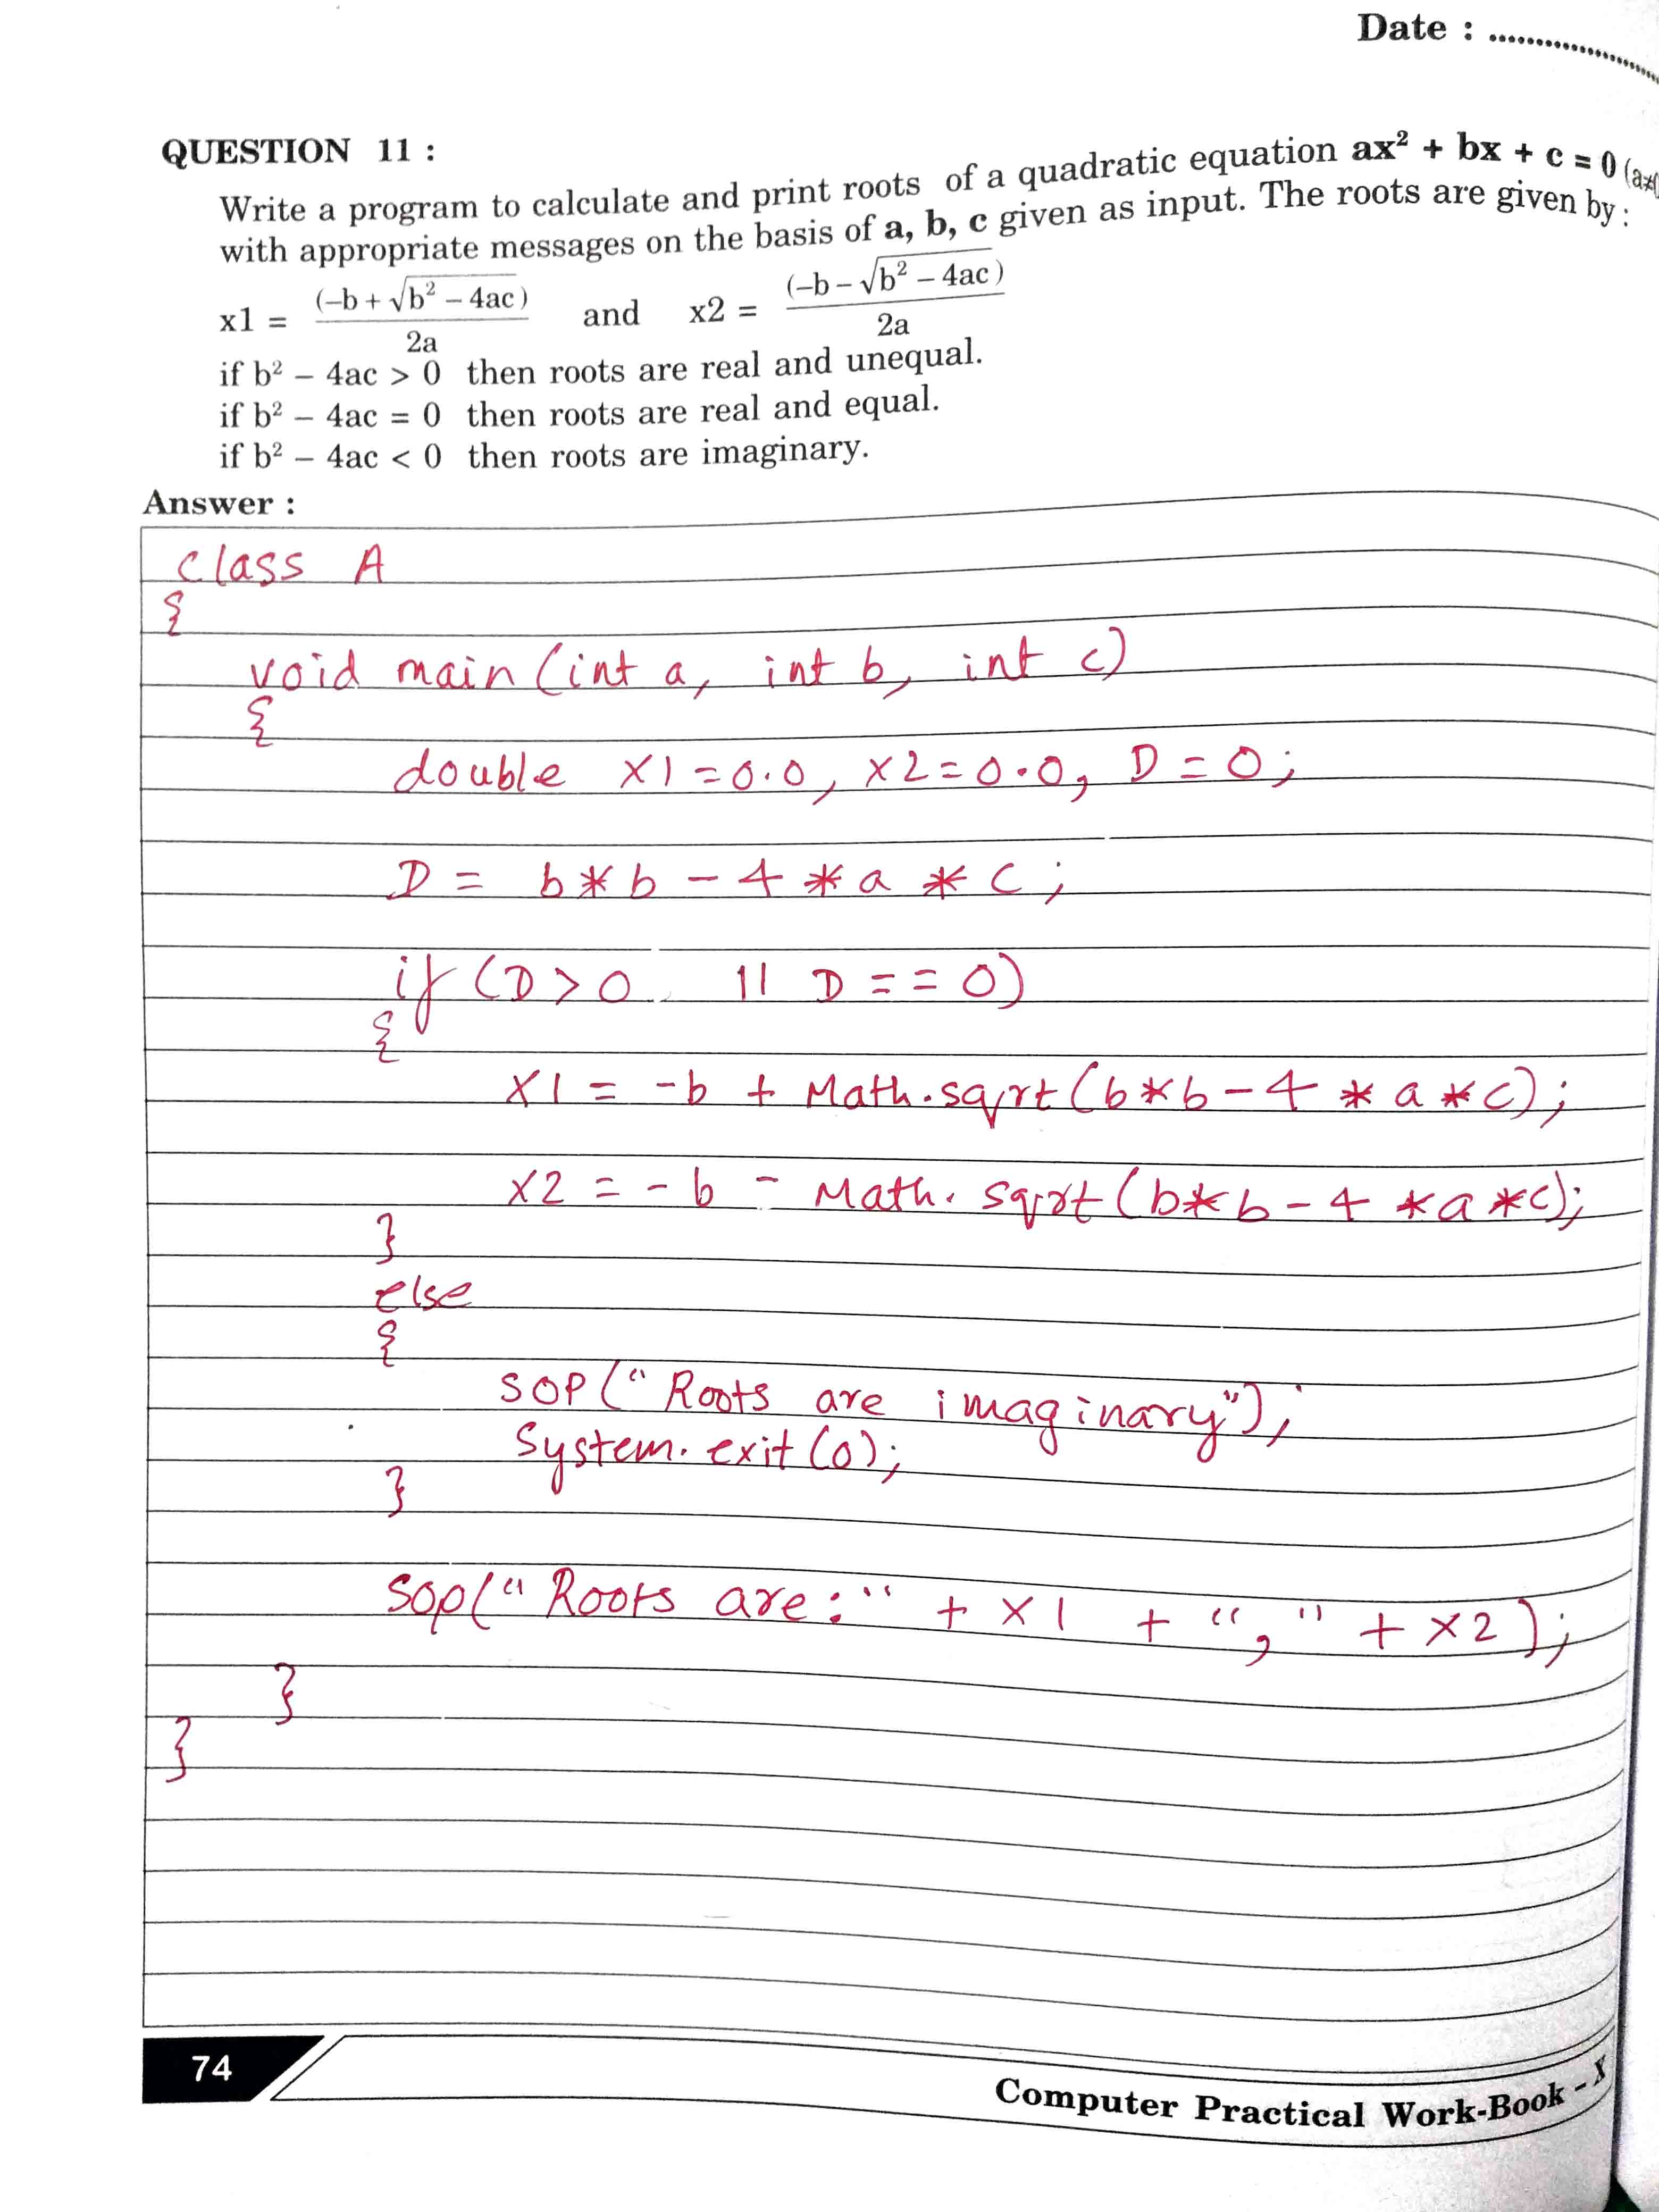 Date : ....................
QUESTION 11 :
Write a program to calculate and print roots of a quadratic equation ax² + bx + c = 0 (a≠0
with appropriate messages on the basis of a, b, c given as input. The roots are given by :
x1 = (–b + √b² – 4ac) / 2a and x2 = (–b – √b² – 4ac) / 2a
if b² – 4ac > 0 then roots are real and unequal.
if b² – 4ac = 0 then roots are real and equal.
if b² – 4ac < 0 then roots are imaginary.
Answer :
class A
{
void main (int a, int b, int c)
{
double X1=0.0, X2=0.0, D=0;
D = b*b - 4 * a * c;
if (D>0 || D==0)
{
X1 = -b + Math.sqrt(b*b-4 * a *c);
X2 = -b - Math.sqrt(b*b-4 *a *c);
}
else
{
SOP("Roots are imaginary");
System.exit(0);
}
Sop("Roots are:" + X1 + "," + X2);
}
}
74
Computer Practical Work-Book - X